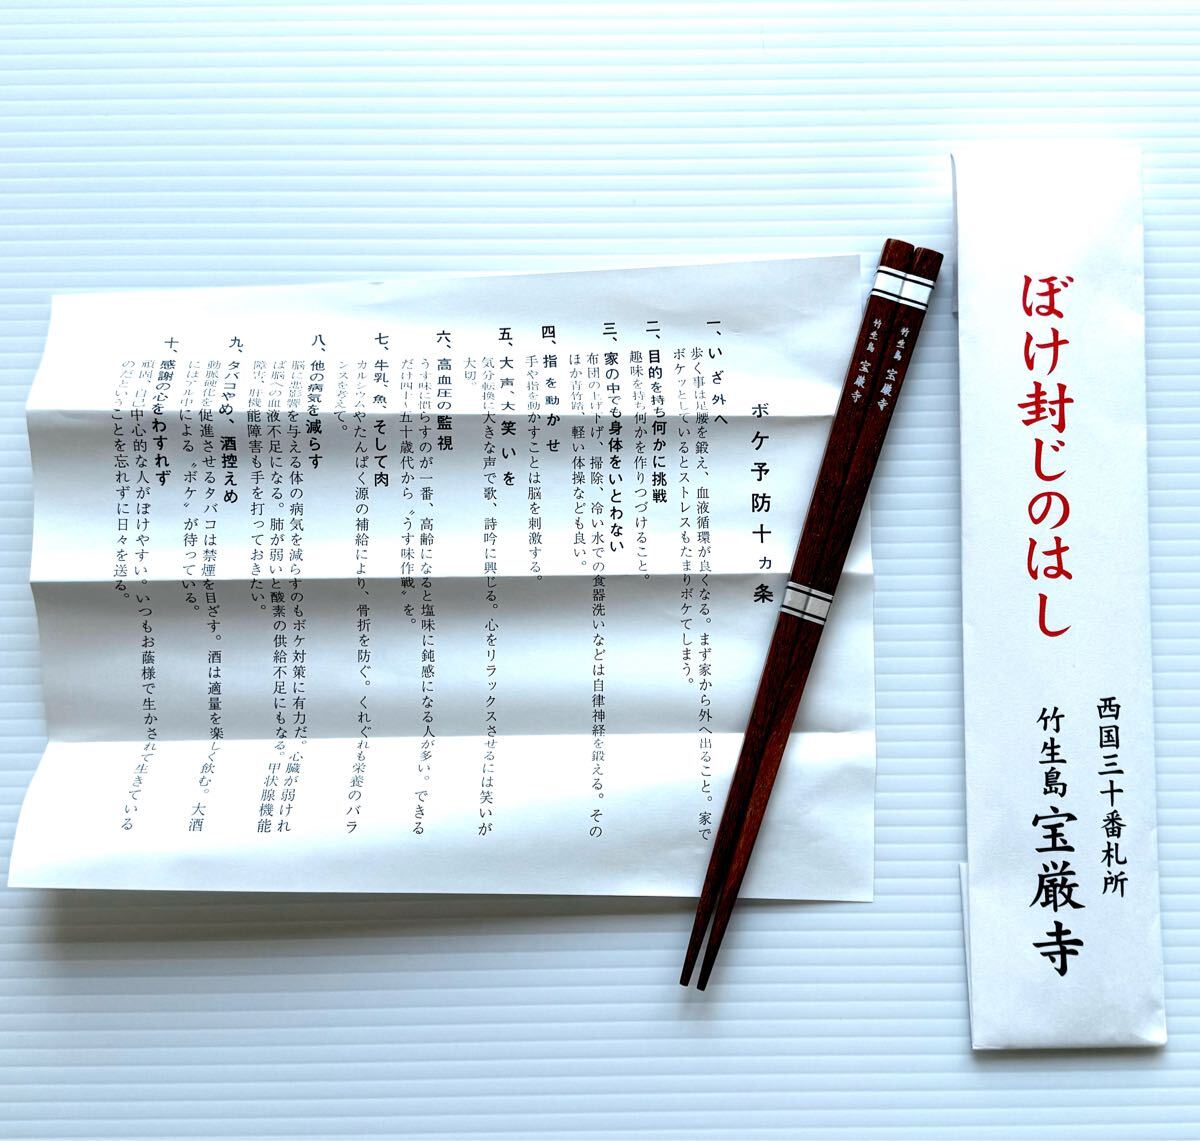 ぼけ封じのはし
西国三十番札所
竹生島 宝厳寺
竹生島 宝厳寺
竹生島 宝厳寺
ボケ予防十ヵ条
一、いざ外へ
歩く事は足腰を鍛え、血液循環が良くなる。まず家から外へ出ること。家で
ボケッとしているとストレスもたまりボケてしまう。
二、目的を持ち何かに挑戦
趣味を持ち何かを作りつづけること。
三、家の中でも身体をいとわない
布団の上げ下げ、掃除、冷い水での食器洗いなどは自律神経を鍛える。その
ほか青竹踏、軽い体操なども良い。
四、指を動かせ
手や指を動かすことは脳を刺激する。
五、大声、大笑いを
気分転換に大きな声で歌、詩吟に興じる。心をリラックスさせるには笑いが
大切。
六、高血圧の監視
うす味に慣らすのが一番、高齢になると塩味に鈍感になる人が多い。できる
だけ四十、五十歳代から〝うす味作戦〟を。
七、牛乳、魚、そして肉
カルシウムやたんぱく源の補給により、骨折を防ぐ。くれぐれも栄養のバラ
ンスを考えて。
八、他の病気を減らす
脳に悪影響を与える体の病気を減らすのもボケ対策に有力だ。心臓が弱けれ
ば脳への血液不足になる。肺が弱いと酸素の供給不足にもなる。甲状腺機能
障害、肝機能障害も手を打っておきたい。
九、タバコやめ、酒控えめ
動脈硬化を促進させるタバコは禁煙を目ざす。酒は適量を楽しく飲む。大酒
にはアル中による〝ボケ〟が待っている。
十、感謝の心をわすれず
頑固、自己中心的な人がぼけやすい。いつもお蔭様で生かされて生きている
のだということを忘れずに日々を送る。